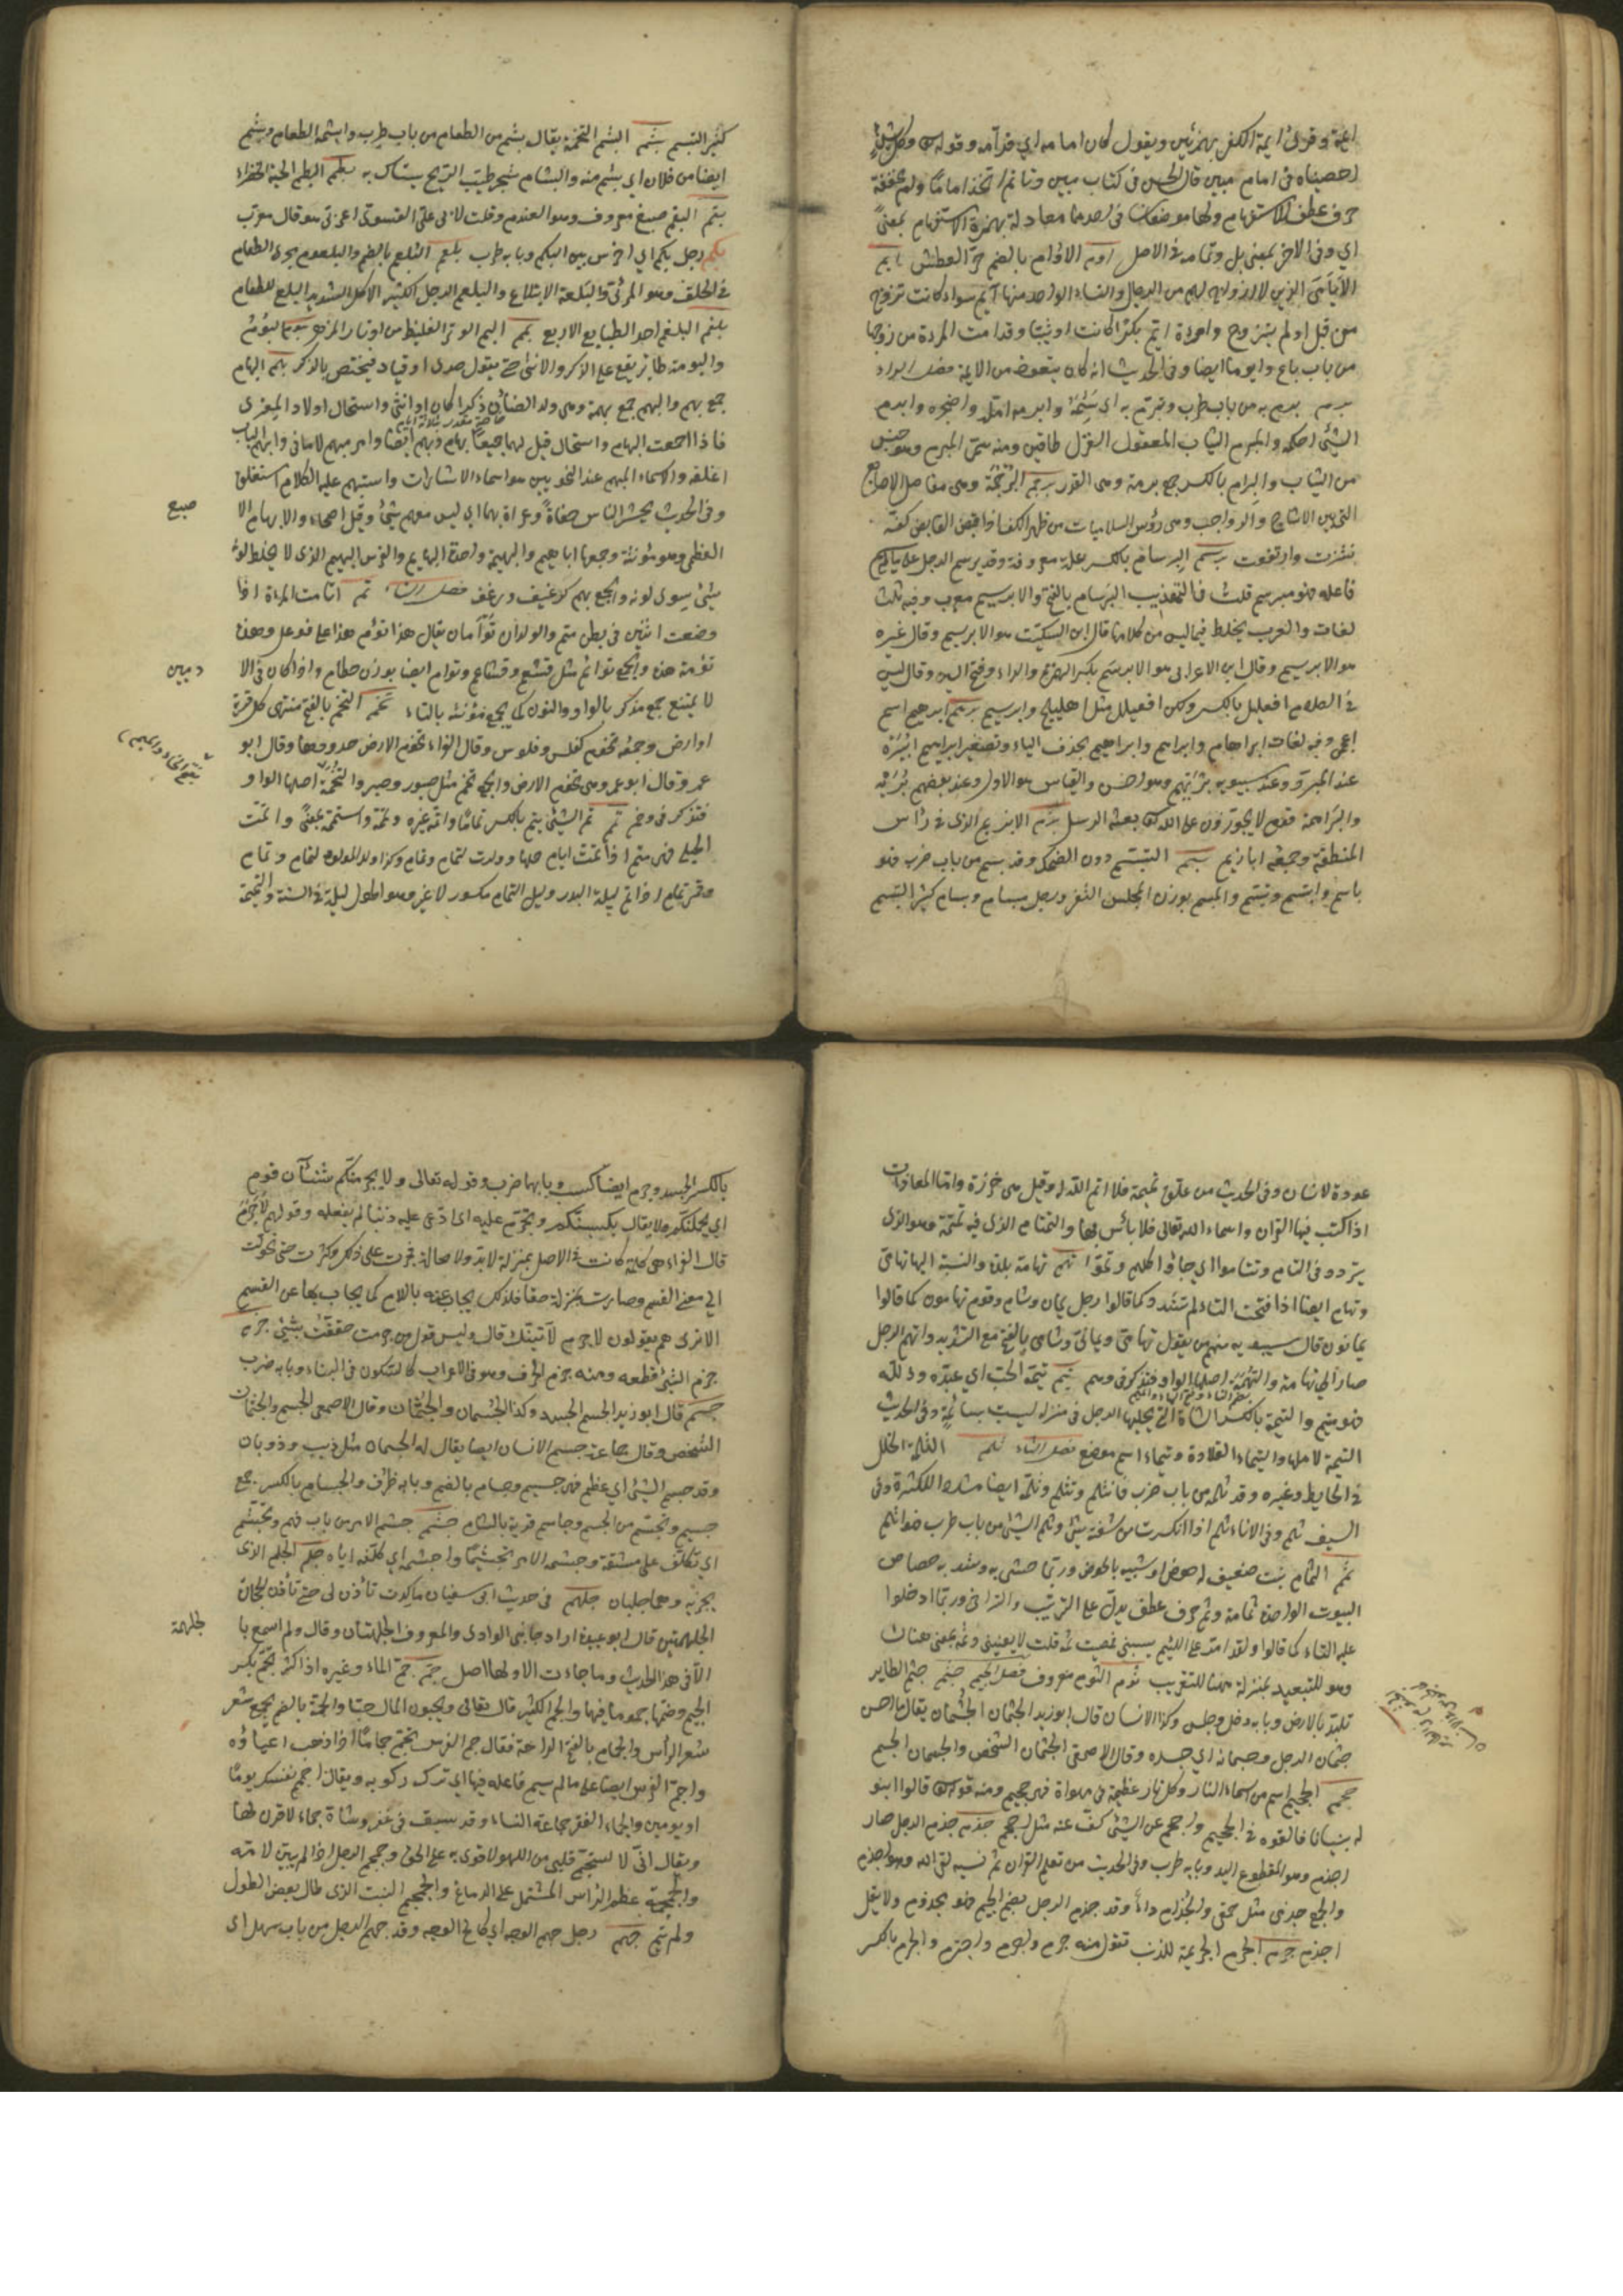 ائمة وقرئ ايمة الكفر بهمزتين ويقول كان امامه اي قدّامه وقوله تعالى وكل شئ
احصيناه في امام مبين قال الحسن في كتاب مبين وتأمم اتخذ اماما وأم مخففة
حرف عطف الاستفهام ولها موضعان في احدهما معادلة بهمزة الاستفهام بمعنى
اي وفي الاخر بمعنى بل وتمامه في الاصل اوم الاوام بالضم حرّ العطش ايم
الأيامى الذين لا ازواج لهم من الرجال والنساء الواحد منهما ايّم سواء كانت تزوج
من قبل او لم يتزوج وامرأة ايّم بكرا كانت او ثيبا وقد امت المرأة من زوجها
من باب باع وايوما ايضا وفي الحديث انه كان يتعوذ من الايمة فصل الباء
برم برم به من باب طرب وتبرّم به اي سئمه وابرمه املّه واضجره وابرم
الشئ احكمه والمبرم الثياب المفتول الغزل طاقين ومنه سمّي المبرم وهو جنس
من الثياب والبرام بالكسر جمع برمة وهي القدر برجم البرجمة وهي مفاصل الاصابع
التي بين الاشاجع والرواجب وهي رؤس السلاميات من ظهر الكف اذا قبض القابض كفّه
نشزت وارتفعت برسم البرسام بالكسر علة معروفة وقد برسم الرجل على ما لم يسم
فاعله فهو مبرسم قلت في التهذيب البرسام بالفتح والابريسم معرب وفيه ثلث
لغات والعرب يخلط فيما ليس من كلامها قال ابن السكيت هو الابريسم وقال غيره
هو الابريسم وقال ابن الاعرابي هو الابريسم بكسر الهمزة والراء وفتح السين وقال ليس
في الكلام افعيلل بالكسر ولكن افعيلل مثل اهليلج وابريسم برهم ابراهيم اسم
اعجمي وفيه لغات ابراهام وابراهم وابراهيم بحذف الياء وتصغير ابراهيم ابيره
عند المبرد وعند سيبويه بريهيم وهو احسن والقياس هو الاول وعند بعضهم بريه
والبراهمة قوم لا يجوزون على الله تعالى بعثة الرسل بزم الابزيم الذي في رأس
المنطقة وجمعه ابازيم بسم التبسم دون الضحك وقد بسم من باب ضرب فهو
باسم وابتسم وتبسم والمبسم بوزن المجلس الثغر ورجل مبسام وبسام كثير التبسم
كثير التبسم بشم البشم التخمة يقال بشم من الطعام من باب طرب وابشمه الطعام وبشم
ايضا من فلان اي سئم منه والبشام شجر طيب الريح يستاك به بطم البطم الحبة الخضراء
بقم البقم صبغ معروف وهو العندم وقلت لابي علي الفسوي اعربي هو قال معرب
بكم رجل بكم اي اخرس بين البكم وبابه طرب بلعم البلعم بالضم والبلعوم مجرى الطعام
في الحلق وهو المرئ والبلعمة الابتلاع والبلعم الرجل الكثير الاكل الشديد البلع للطعام
بلغم البلغم احد الطبايع الاربع بمم البم الوتر الغليظ من اوتار المزهر بوم البوم
والبومة طائر يقع على الذكر والانثى حتى يقول صدى او فياد فيختص بالذكر بهم البهام
جمع بهم والبهم جمع بهمة وهي ولد الضأن ذكرا كان او انثى والسخال اولاد المعزى
فاذا اجتمعت البهام والسخال قيل لهما جميعا بهام وبهم ايضا وامر مبهم لا مأتى وابهم الباب
اغلقه والاسماء المبهم عند النحويين هو اسماء الاشارات واستبهم عليه الكلام استغلق
وفي الحديث يحشر الناس حفاة وعراة بهما اي ليس معهم شئ وقيل اصحاء والابهام الا
العظمى وهو مؤنثة وجمعها اباهيم والبهيمة واحدة البهايم والفرس البهيم الذي لا يخلط لونه
شئ سوى لونه والجمع بهم كرغيف ورغف فصل التاء تئم اتأمت المرأة اذا
وضعت اثنين في بطن متم والولدان توأمان يقال هذا توءم هذا على فوعل وهذه
توءمة هذه والجمع توائم مثل قشعم وقشاعم وتوام ايضا بوزن حطام واذا كان في الا
لا يمتنع جمع مذكر بالواو والنون كما يجمع مؤنثه بالتاء تخم التخم بالفتح منتهى كل قرية
او ارض وجمعه تخوم كفلس وفلوس وقال الفراء تخوم الارض حدودها وقال ابو
عمرو وقال ابو عمرو هي تخوم الارض والجمع تخم مثل صبور وصبر والتخمة اصلها الواو
فتذكر في وخم تمم تم الشئ يتم بالكسر تماما واتمه غيره وتممه واستتمه بمعنى واتمت
الحبلى فهي متم اذا تمت ايام حملها وولدت لتمام وتمام وكذا ولد المولود لتمام وتمام
وقمر تمام اذا تم ليلة البدر وليل التمام مكسور لا غير وهو اطول ليلة في السنة والتميمة
صبع
دميين
بفتح الخاء والميم
عوذة للانسان وفي الحديث من علّق تميمة فلا اتم الله له وقيل هي خرزة واما المعاذات
اذا كتب فيها القران واسماء الله تعالى فلا بأس بها والتمتام الذي فيه تمتمة وهو الذي
يتردد في التاء وتتاموا اي جاؤا كلهم وتموا تهم تهامة بلد والنسبة اليها تهامي
وتهام ايضا اذا فتحت التاء لم تشدد كما قالوا رجل يمان وشام وقوم تهامون كما قالوا
يمانون قال سيبويه منهم من يقول تهامي ويماني وشامي بالفتح مع التشديد واتهم الرجل
صار الى تهامة والتهمة اصلها الواو فتذكر في وهم تيم تيمه الحب اي عبّده وذلّله
فهو متيم والتيمة بالكسر الشاة التي يحلبها الرجل في منزله ليست بسائمة وفي الحديث
التيمة لاهلها والتيماء الفلاة وتيماء اسم موضع فصل الثاء ثلم الثلمة الخلل
في الحايط وغيره وقد ثلمه من باب ضرب فانثلم وتثلم وثلّمه ايضا مشدد للكثرة وفي
السيف ثلم وفي الاناء ثلم اذا انكسر من شفته شئ وثلم الشئ من باب طرب فهو اثلم
ثمم الثمام نبت ضعيف له خوص او شبيه بالخوص وربما حشي به وسد به خصاص
البيوت الواحدة ثمامة وثم حرف عطف يدل على الترتيب والتراخي وربما ادخلوا
عليه التاء كما قالوا ولقد امر على اللئيم يسبني فمضيت ثمة قلت لا يعنيني وثم بمعنى هناك
وهو للتبعيد بمنزلة هنا للتقريب ثوم الثوم معروف فصل الجيم جثم جثم الطاير
تلبد بالارض وبابه دخل وجلس وكذا الانسان قال ابو زيد الجثمان الجسمان يقال ما احسن
جثمان الرجل وجسمانه اي جسده وقال الاصمعي الجثمان الشخص والجسمان الجسم
جحم الجحيم اسم من اسماء النار وكل نار عظيمة في مهواة فهي جحيم ومنه قوله تعالى قالوا ابنوا
له بنيانا فالقوه في الجحيم واجحم عن الشئ كف عنه مثل احجم جذم جذم الرجل صار
اجذم وهو المقطوع اليد وبابه طرب وفي الحديث من تعلم القران ثم نسيه لقي الله وهو اجذم
والجمع جذمى مثل حمقى والجذام داء وقد جذم الرجل بضم الجيم فهو مجذوم ولا يقال
اجذم جرم الجرم الجريمة للذنب تقول منه جرم واجرم واجترم والجرم بالكسر
بالكسر الجسد وجرم ايضا كسب وبابهما ضرب وقوله تعالى ولا يجرمنكم شنئان قوم
اي يحملنكم فلا يقال يكسبنكم وتجرّم عليه اي ادّعى عليه ذنبا لم يفعله وقولهم لا جرم
قال الفراء هي كلمة كانت في الاصل بمنزلة لا بد ولا محالة فجرت على ذلك وكثرت حتى تحولت
الى معنى القسم وصارت بمنزلة حقا فلذلك يجاب عنه باللام كما يجاب بها عن القسم
الا ترى هم يقولون لا جرم لآتينك قال وليس قول من جرمت حققت بشئ جزم
جزم الشئ قطعه ومنه جزم الحرف وهو في الاعراب كالسكون في البناء وبابه ضرب
جسم قال ابو زيد الجسم الجسد وكذا الجسمان والجثمان وقال الاصمعي الجسم والجثمان
الشخص وقال جماعة جسم الانسان ايضا يقال له الجسمان مثل ذيب وذوبان
وقد جسم الشئ اي عظم فهو جسيم وجسام بالضم وبابه ظرف والجسام بالكسر جمع
جسيم وتجسم من الجسم وجاسم قرية بالشام جشم جشم الامر من باب فهم وتجشم
اي تكلف على مشقة وجشمه الامر تجشيما واجشمه اي كلّفه اياه جلم الجلم الذي
يجز به وهما جلمان جلهم في حديث ابي سفيان ما كدت تأذن لي حتى تأذن لحجارة
الجلهمتين قال ابو عبيدة اراد جانبي الوادي والمعروف الجلهتان وقال ولم اسمع با
الا في هذا الحديث وما جاءت الا ولها اصل جمم جم الماء وغيره اذا كثر يجم بكسر
الجيم وضمها جموما فيهما والجم الكثير قال تعالى ويحبون المال حبا والجمة بالضم مجمع شعر
شعر الرأس والجمام بالفتح الراحة فقال جم الفرس يجم جماما اذا ذهب اعياؤه
واجم الفرس ايضا على ما لم يسم فاعله فيها اي ترك ركوبه ويقال اجم نفسك يوما
او يومين والجماء الغفير جماعة النساء وقد سبق في غفر وشاة جماء لا قرن لها
ويقال اني لاستجم قلبي من اللهو لاقوى به على الحق وجمجم الرجل اذا لم يبين كلامه
والجمجمة عظم الرأس المشتمل على الدماغ والجميم النبت الذي طال بعض الطول
ولم يتم جهم رجل جهم الوجه اي كالح الوجه وقد جهم الرجل من باب سهل اي
لجلهمة